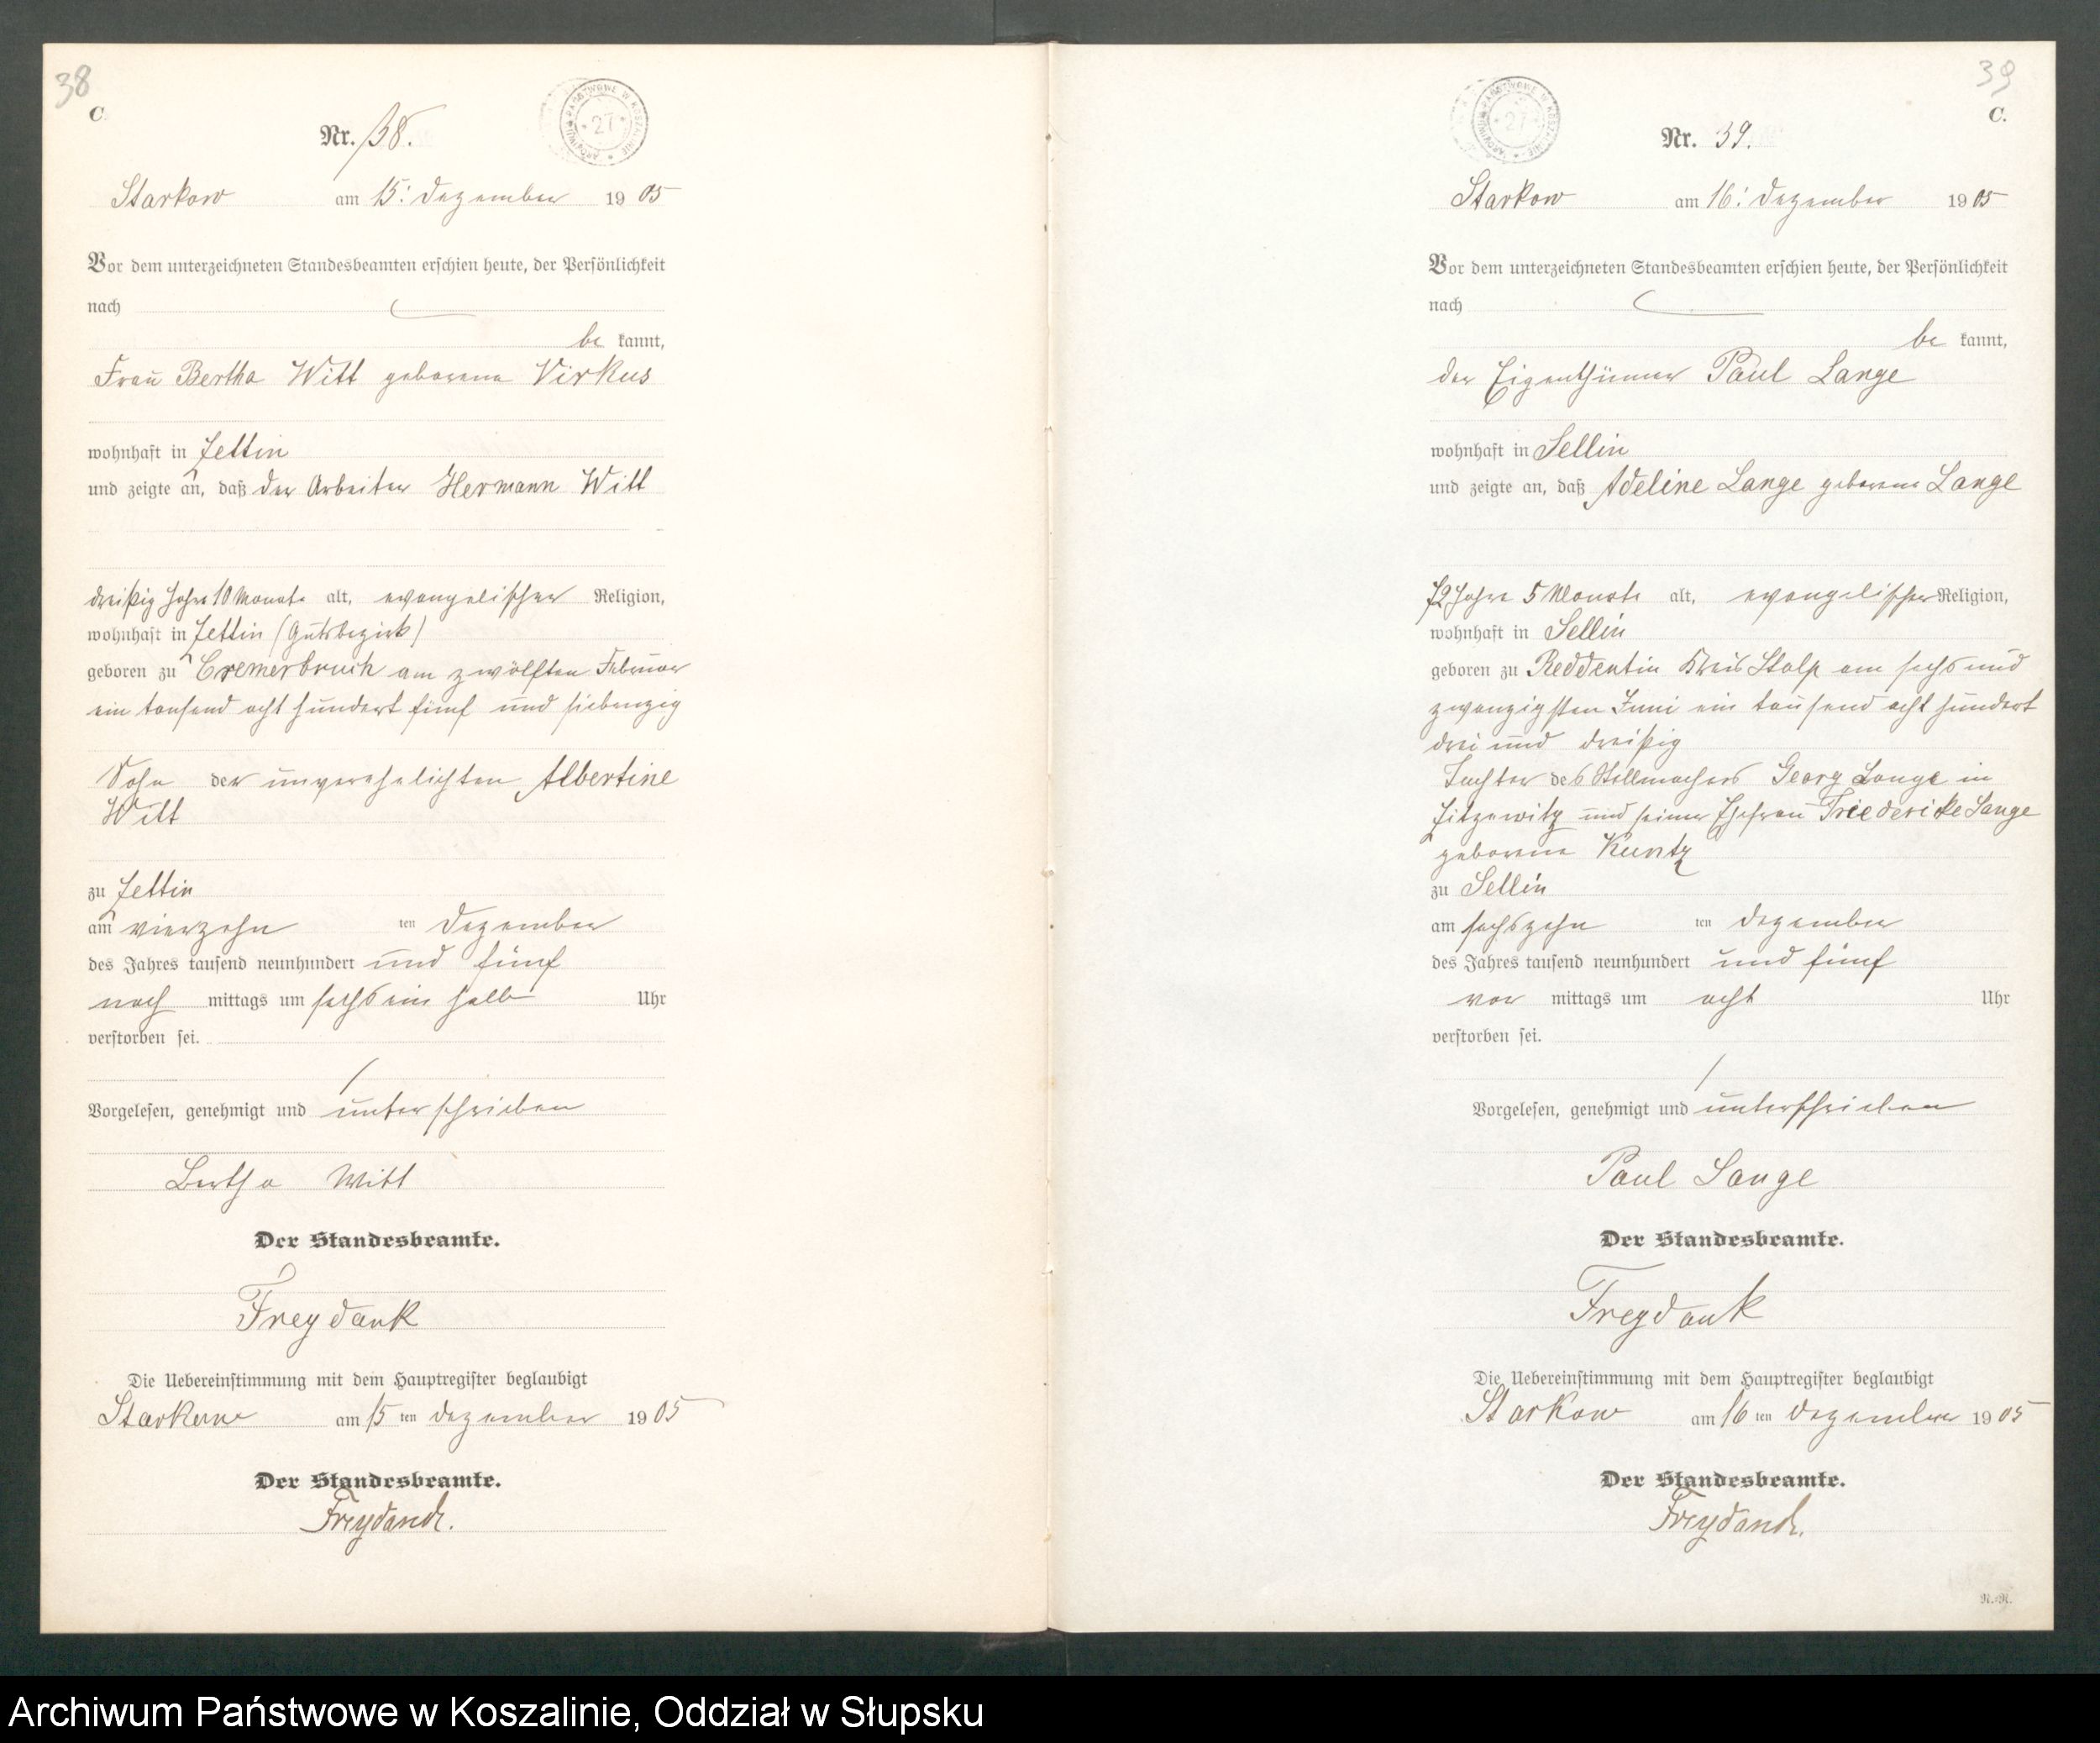 38
C.
Nr. 38.
ARCHIWUM PAŃSTWOWE W KOSZALINIE
27
Starkow am 15. Dezember 1905
Vor dem unterzeichneten Standesbeamten erschien heute, der Persönlichkeit
nach
be kannt,
Frau Bertha Witt geborene Virkus
wohnhaft in Zettin
und zeigte an, daß der Arbeiter Hermann Witt
dreißig Jahre 10 Monate alt, evangelischer Religion,
wohnhaft in Zettin (Gutsbezirk)
geboren zu Cremerbruch am zwölften Februar
ein tausend acht hundert fünf und siebenzig
Sohn der unverehelichten Albertine
Witt
zu Zettin
am vierzehn ten Dezember
des Jahres tausend neunhundert und fünf
nach mittags um sechs ein halb Uhr
verstorben sei.
Vorgelesen, genehmigt und unterschrieben
Bertha Witt
Der Standesbeamte.
Freydank
Die Uebereinstimmung mit dem Hauptregister beglaubigt
Starkow am 15 ten Dezember 1905
Der Standesbeamte.
Freydank.
39
C.
Nr. 39.
ARCHIWUM PAŃSTWOWE W KOSZALINIE
27
Starkow am 16. Dezember 1905
Vor dem unterzeichneten Standesbeamten erschien heute, der Persönlichkeit
nach
be kannt,
der Eigenthümer Paul Lange
wohnhaft in Sellin
und zeigte an, daß Adeline Lange geborene Lange
72 Jahre 5 Monate alt, evangelischer Religion,
wohnhaft in Sellin
geboren zu Reddentin Kreis Stolp am sechs und
zwanzigsten Juni ein tausend acht hundert
drei und dreißig
Tochter des Stellmachers Georg Lange in
Zitzewitz und seiner Ehefrau Friedericke Lange
geborene Kuntz
zu Sellin
am sechszehn ten Dezember
des Jahres tausend neunhundert und fünf
vor mittags um acht Uhr
verstorben sei.
Vorgelesen, genehmigt und unterschrieben
Paul Lange
Der Standesbeamte.
Freydank
Die Uebereinstimmung mit dem Hauptregister beglaubigt
Starkow am 16 ten Dezember 1905
Der Standesbeamte.
Freydank.
Archiwum Państwowe w Koszalinie, Oddział w Słupsku